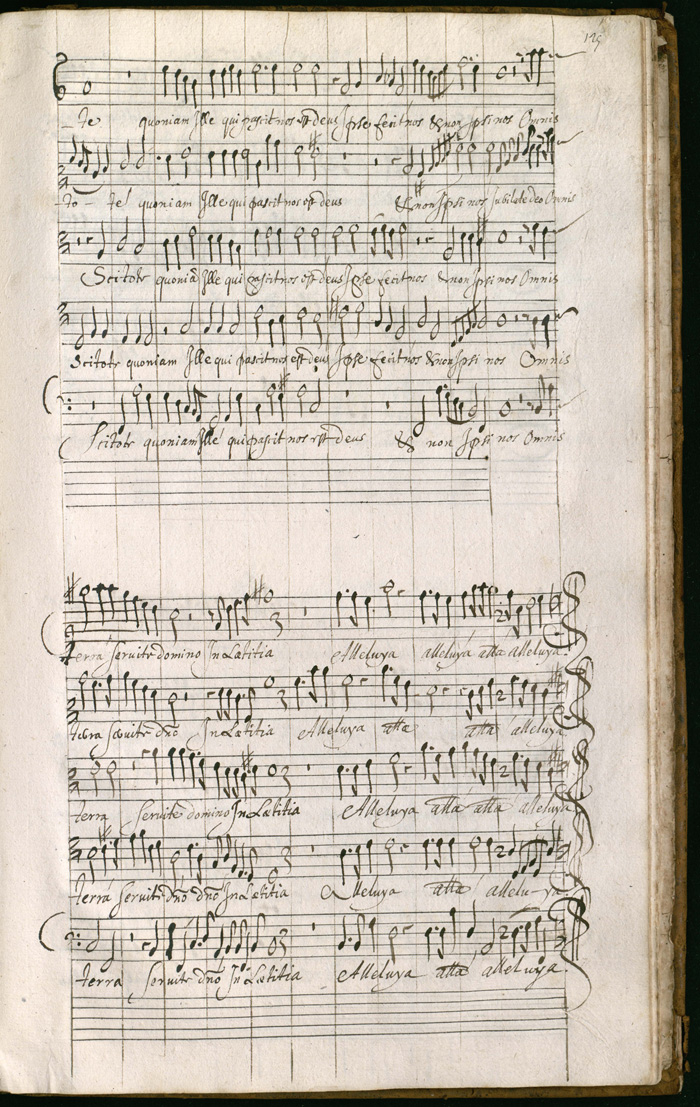 125
_ te quoniam Ille qui pascit nos est deus Ipse fecit nos & non Ipsi nos Omnis
to - te quoniam Ille qui pascit nos est deus & non Ipsi nos Jubilate deo Omnis
Scitote quoniã Ille qui pascit nos est deus Ipse fecit nos & non Ipsi nos Omnis
Scitote quoniam Ille qui pascit nos est deus Ipse fecit nos & non Ipsi nos Omnis
Scitote quoniam Ille qui pascit nos est deus & non Ipsi nos Omnis
terra servite domino In Lætitia Alleluya alleluya alla alleluya.
terra servite dño In Lætitia Alleluya alla alla alleluya
terra servite domino In Lætitia Alleluya alla alla alleluya
terra servite dño dño In Lætitia Alleluya alla allelu-ya.
terra servite dño In Lætitia Alleluya alla alleluya.